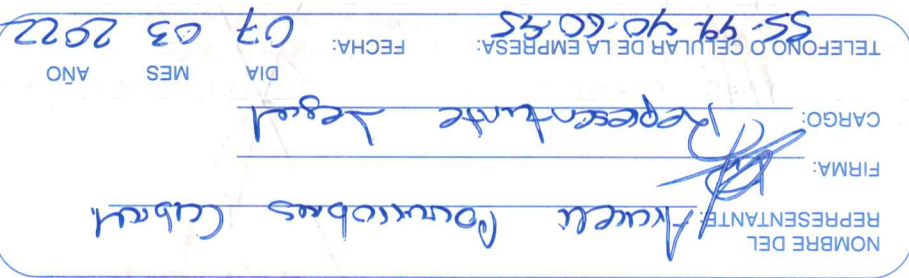 NOMBRE DEL
REPRESENTANTE: Araceli Covarrubias Cabral
FIRMA:
CARGO: Representante Legal
TELEFONO O CELULAR DE LA EMPRESA: 55-44-40-60-75 FECHA: 07 03 2022
DIA MES AÑO